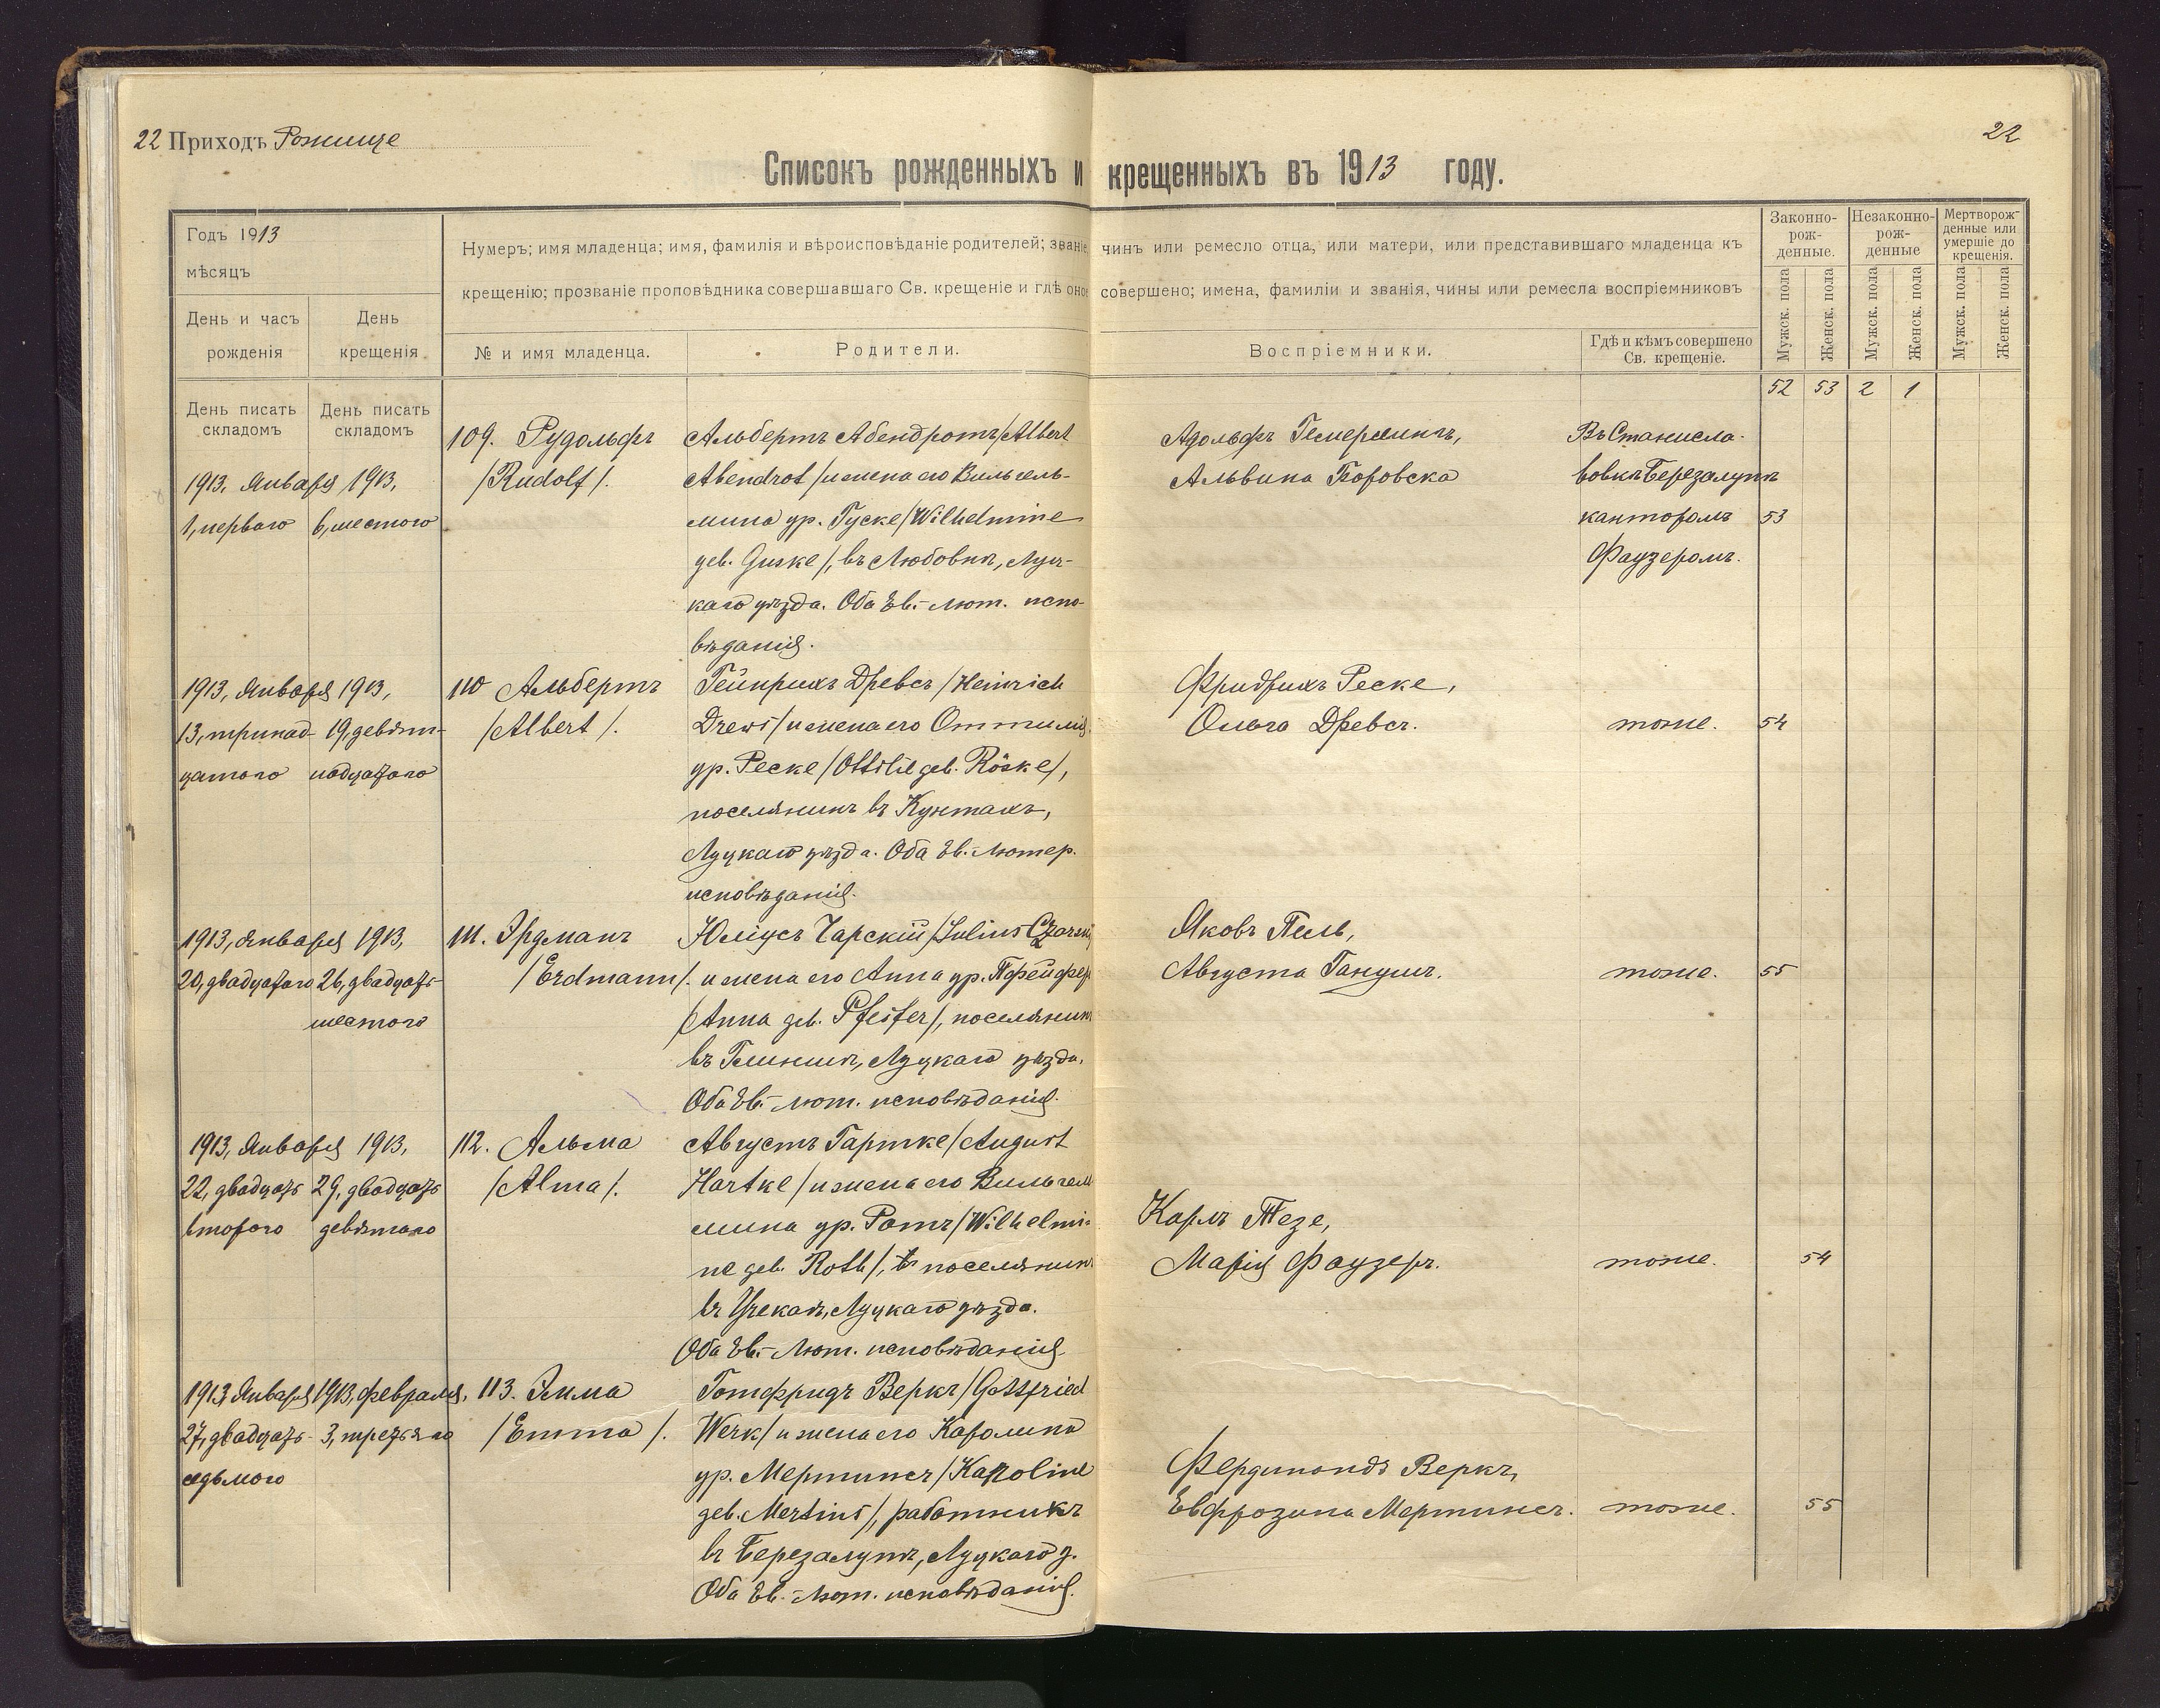 22 Приходъ Рожище
22
Списокъ рожденныхъ и крещенныхъ въ 1913 году.
Годъ 1913
мѣсяцъ
День и часъ рожденія
День крещенія
Нумеръ; имя младенца; имя, фамилія и вѣроисповѣданіе родителей; званіе, чинъ или ремесло отца, или матери, или представившаго младенца къ
крещенію; прозваніе проповѣдника совершавшаго Св. крещеніе и гдѣ оное совершено; имена, фамиліи и званія, чины или ремесла воспріемниковъ
№ и имя младенца.
Родители.
Воспріемники.
Гдѣ и кѣмъ совершено
Св. крещеніе.
Законно-
рож-
денные.
Незаконно-
рож-
денные
Мертворож-
денные или
умершіе до
крещенія.
Мужск. пола
Женск. пола
Мужск. пола
Женск. пола
Мужск. пола
Женск. пола
52 53 2 1
День писать
складомъ
День писать
складомъ
1913, Января 1913,
1, перваго 6, шестого
109. Рудольфъ
/Rudolf/.
Альбертъ Абендротъ/Albert
Abendrot/ и жена его Вильгель-
мина ур. Гуске/Wilhelmine
geb. Guske/, въ Любовкѣ, Луц-
каго уѣзда. Оба Ев.-лют. испо-
вѣданія.
Адольфъ
Альвина Боровска
Въ Станисла-
вовкѣ Березалупѣ
канторомъ
Фаузеромъ.
53
1913, Января 1913,
13, тринад- 19, девят-
цатого надцатого
110 Альбертъ
/Albert/.
Гейнрихъ Древсъ /Heinrich
Drews/ и жена его Оттилія
ур. Реске /Ottilie geb. Röske/,
поселянинъ въ
Луцкаго уѣзда. Оба Ев.-лютер.
исповѣданія.
Фридрихъ Реске,
Ольга Древсъ.
тоже.
54
1913, Января 1913,
20, двадцатого 26, двадцать-
шестого
111. Эрдманъ
/Erdmann/.
Юліусъ Чарскій /Julius Czarski
и жена его Анна ур. Пфейфер
/Anna geb. Pfeifer/, поселянинъ
въ Глинищѣ, Луцкаго уѣзда.
Оба Ев.-лют. исповѣданія.
Яковъ Пель,
Августа Ганушъ.
тоже.
55
1913, Января 1913,
22, двадцать 29, двадцать
второго девятаго
112. Альма
/Alma/.
Августъ Гартке/August
Hartke/ и жена его Вильгель
мина ур. Ротъ/Wilhelmi-
ne geb. Roth/, поселянинъ
въ Луцкаго уѣзда.
Оба Ев.-Лют. исповѣданія
Карлъ Тезе,
Марія Фаузеръ.
тоже.
54
1913, Января 1913, февраля,
27, двадцать- 3, третьяго
седьмого
113. Эмма
/Emma/.
Готфридъ Веркъ/Gottfried
Werk/ и жена его Каролина
ур. Мертинсъ/Karoline
geb. Mertins/, работникъ
въ Березалупѣ, Луцкаго у.
Оба Ев.-лют. исповѣданія.
Фердинандъ Веркъ,
Евфрозина Мертинсъ.
тоже.
55